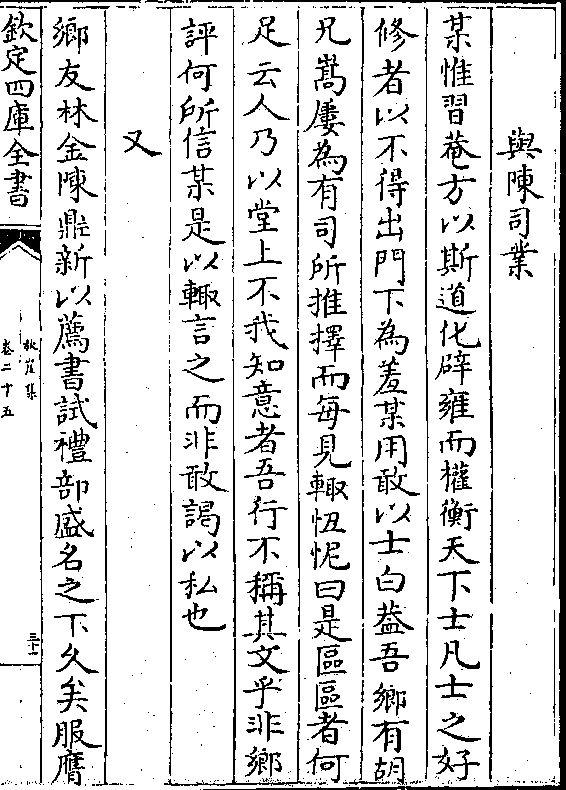 與陳司業
某惟習菴方以斯道化辟雍而權衡天下士凡士之好
修者以不得出門下為羞某用敢以士白蓋吾鄉有胡
兄嵩屢為有司所推擇而每見輒忸怩曰是區區者何
足云人乃以堂上不我知意者吾行不稱其文乎非鄉
評何所信某是以輒言之而非敢謁以私也
又
鄉友林金陳鼎新以薦書試禮部盛名之下久矣服膺
欽定四庫全書
秋崖集
卷二十五
三十一